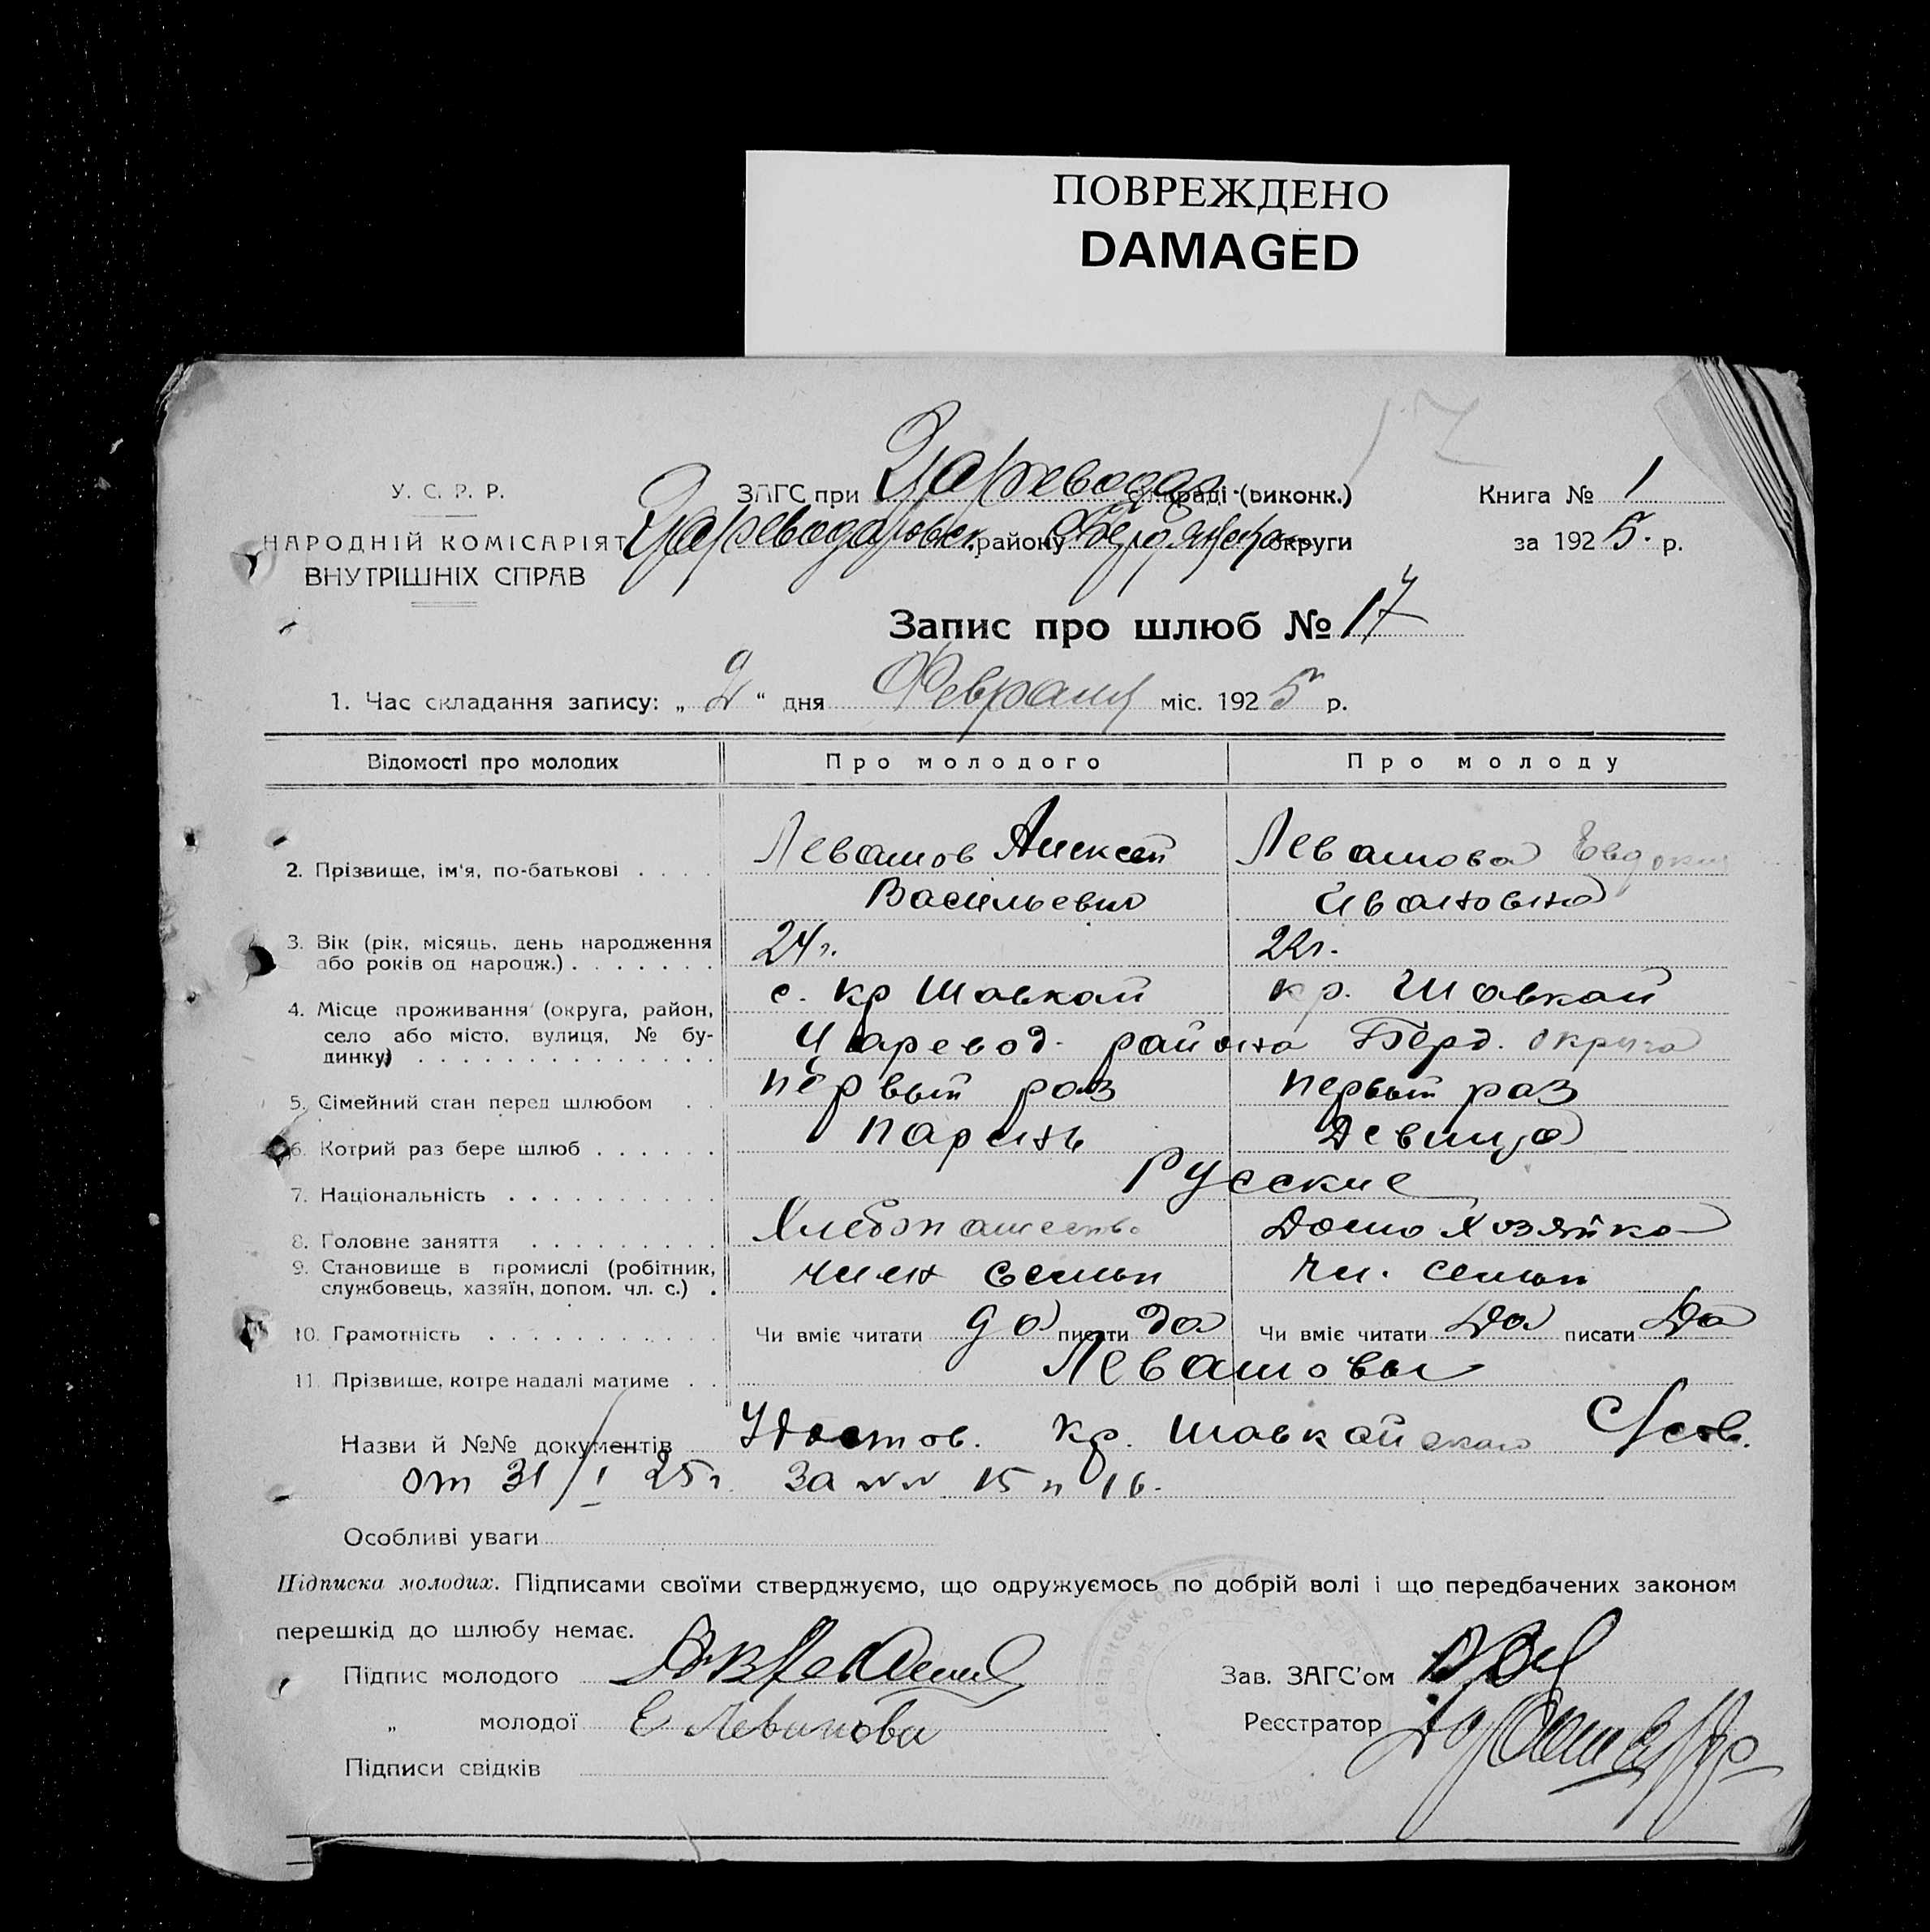 ПОВРЕЖДЕНО
DAMAGED
17
У. С. Р. Р.
НАРОДНІЙ КОМІСАРІЯТ
ВНУТРІШНІХ СПРАВ
ЗАГС при Цареводар. раді (виконк.)
Цареводаровск. району Бердянськ. округи
Книга № 1
за 1925. р.
Запис про шлюб № 17
1. Час складання запису: „ 2 “ дня Февраля міс. 1925 р.
Відомості про молодих Про молодого Про молоду
2. Прізвище, ім'я, по-батькові . . . . Левашов Алексей Левашова Евдокия
Васильевич Ивановна
3. Вік (рік, місяць, день народження або років од народж.) . . . . . . . 24 г. 22 г.
4. Місце проживання (округа, район, село або місто, вулиця, № будинку) . . . . . . . . . . . . . . с. Кр Шавкай кр. Шавкай
Царевод. района Берд. округа
5. Сімейний стан перед шлюбом . . первый раз первый раз
6. Котрий раз бере шлюб . . . . . . парень Девица
7. Національність . . . . . . . . . . Русские
8. Головне заняття . . . . . . . . . Хлебопашество Домохозяйка
9. Становище в промислі (робітник, службовець, хазяїн, допом. чл. с.) . член семьи чл. семьи
10. Грамотність . . . . . . . . . . . Чи вміє читати да писати да Чи вміє читати Да писати Да
11. Прізвище, котре надалі матиме . . Левашовы
Назви й №№ документів Удостов. Кр. Шавкайского С/сов.
от 31/I 25 г. за №№ 15 и 16.
Особливі уваги
Підписка молодих. Підписами своїми стверджуємо, що одружуємось по добрій волі і що передбачених законом
перешкід до шлюбу немає.
Підпис молодого
Зав. ЗАГС'ом
„ молодої Е Левашова
Реєстратор
Підписи свідків